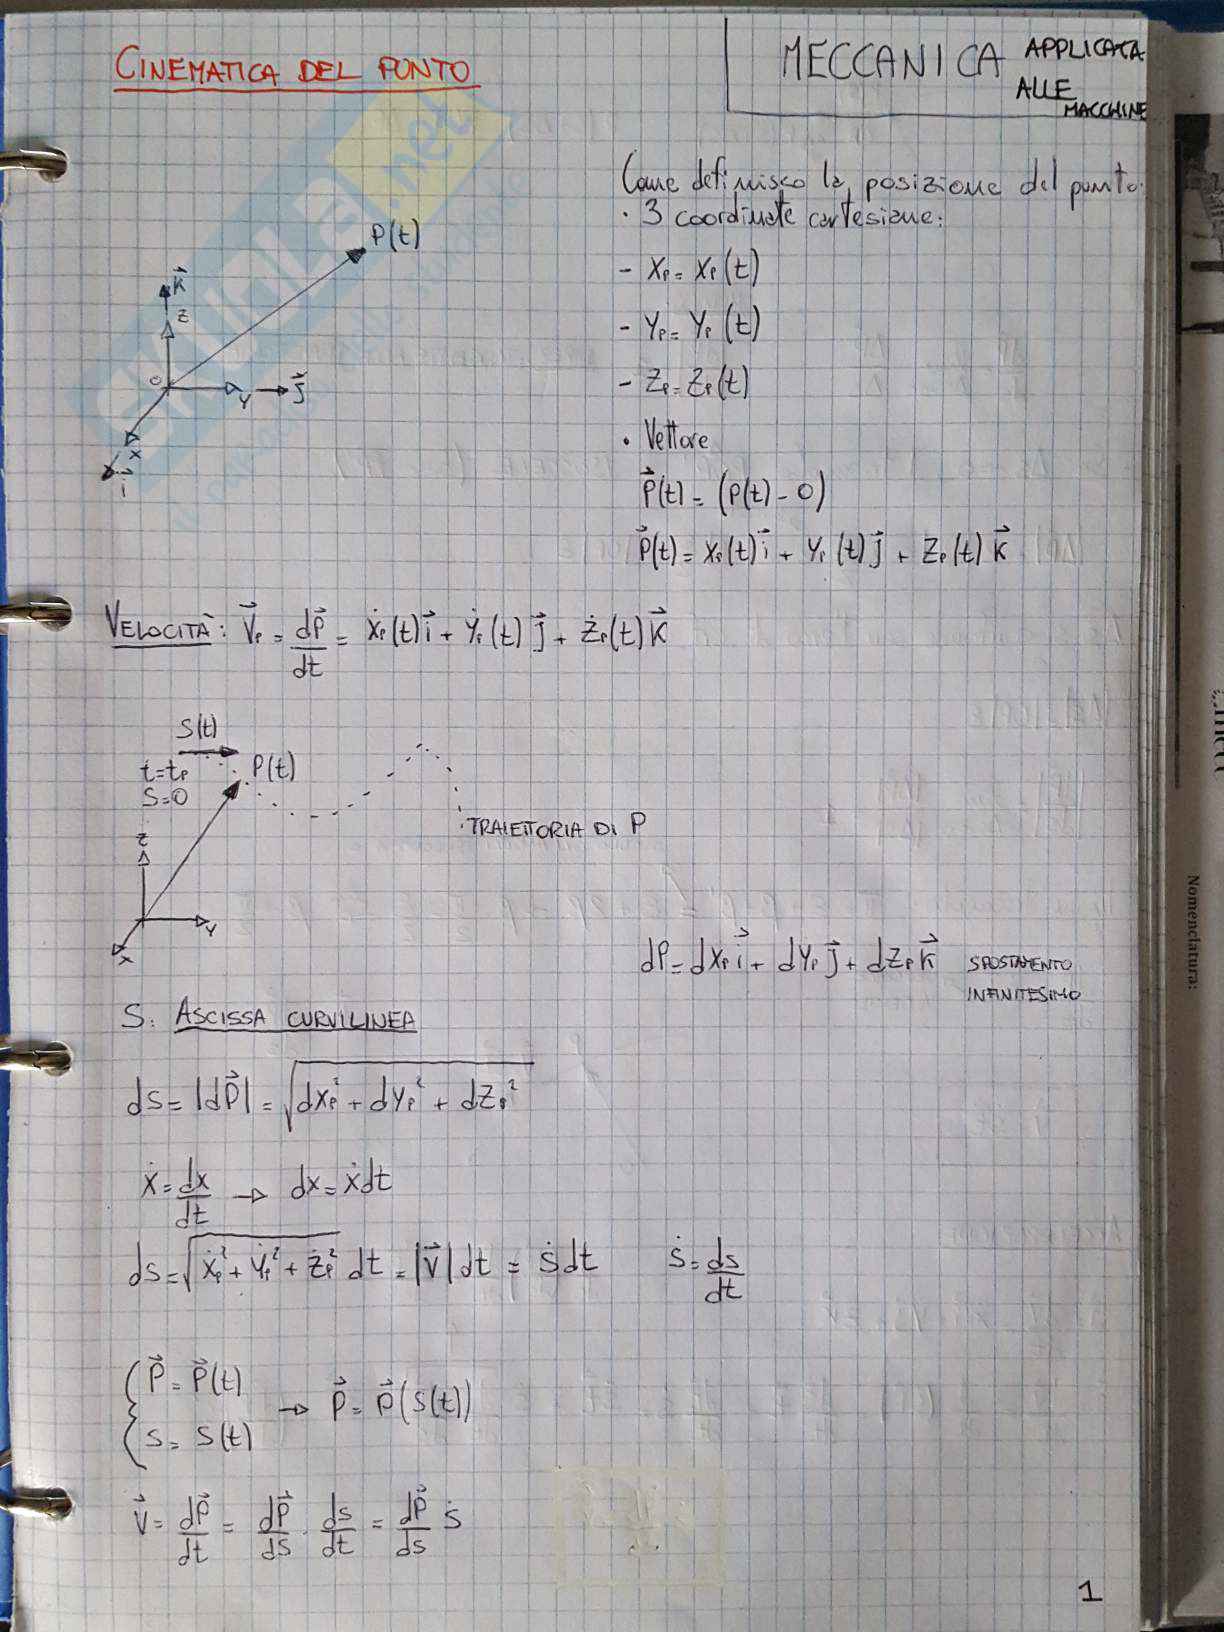 CINEMATICA DEL PUNTO
MECCANICA APPLICATA
ALLE
MACCHINE
Come definisco la posizione del punto:
· 3 coordinate cartesiane:
P(t)
- Xₚ = Xₚ(t)
k⃗
z
- Yₚ = Yₚ(t)
- Zₚ = Zₚ(t)
O
y
j⃗
x
i⃗
· Vettore
P⃗(t) = (P(t) - O)
P⃗(t) = Xₚ(t) i⃗ + Yₚ(t) j⃗ + Zₚ(t) k⃗
VELOCITÀ: V⃗ₚ = dP⃗/dt = Ẋₚ(t) i⃗ + Ẏₚ(t) j⃗ + Żₚ(t) k⃗
S(t)
t = tₚ
P(t)
S = 0
TRAIETTORIA DI P
z
y
x
dP = dXₚ i⃗ + dYₚ j⃗ + dZₚ k⃗ SPOSTAMENTO
INFINITESIMO
S: ASCISSA CURVILINEA
ds = |dP⃗| = √(dXₚ² + dYₚ² + dZₚ²)
ẋ = dx/dt → dx = ẋdt
ds = √(Ẋₚ² + Ẏₚ² + Żₚ²) dt = |V⃗| dt = ṡ dt ṡ = ds/dt
{ P⃗ = P⃗(t)
S = S(t)
→ P⃗ = P⃗(S(t))
V⃗ = dP⃗/dt = dP⃗/ds · ds/dt = dP⃗/ds ṡ
1
Nomenclatura:
SKUOLA.net